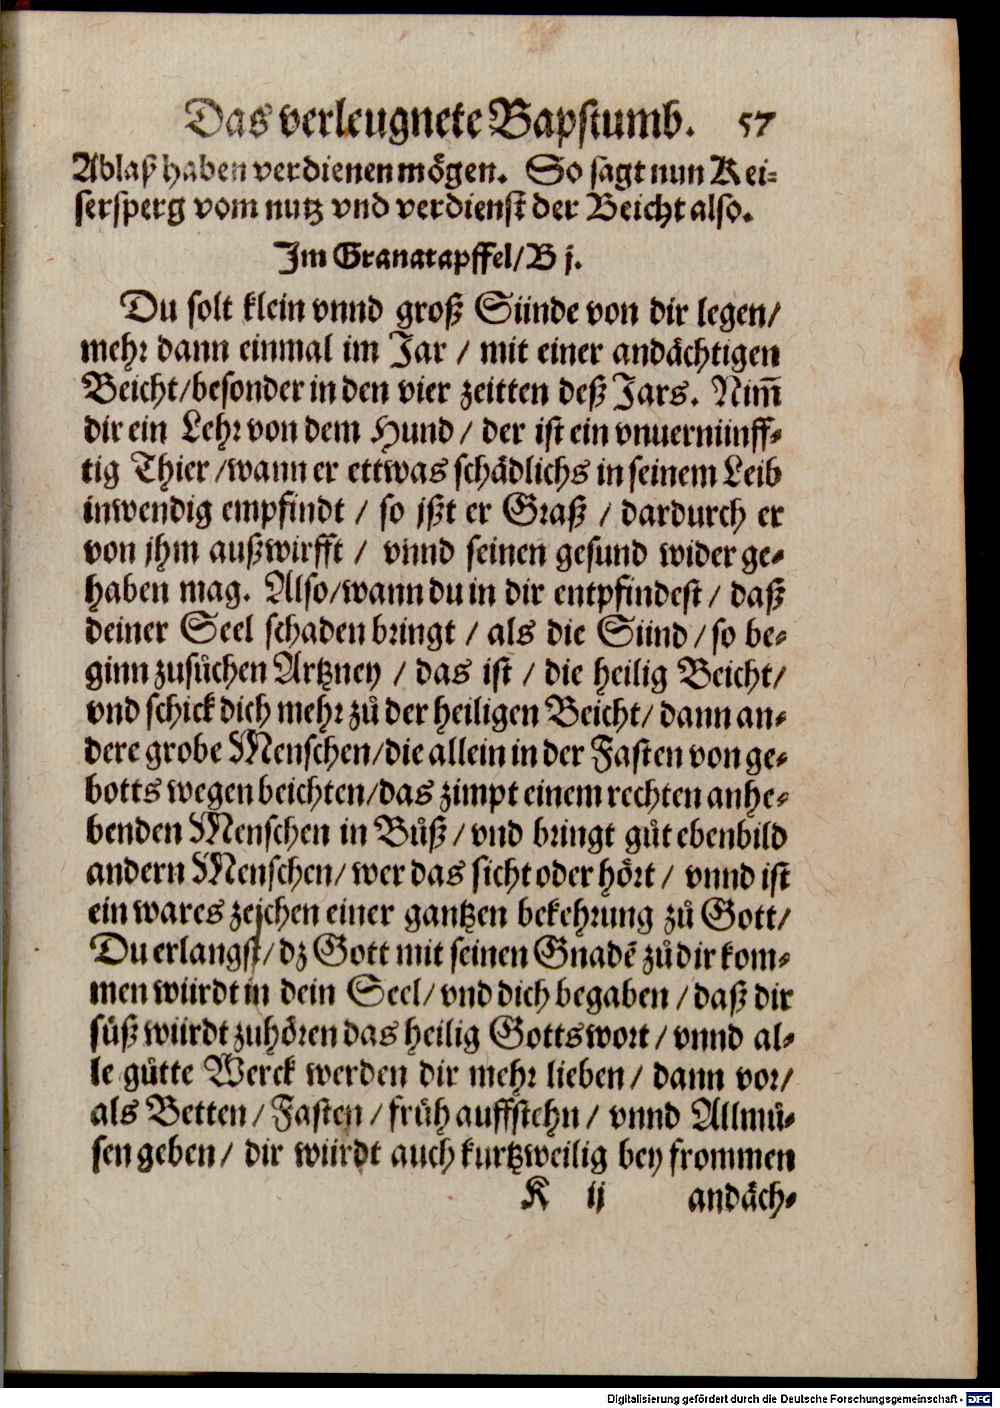 Das verleugnete Bapstumb. 57
Ablaß haben verdienen mögen. So sagt nun Kei-
sersperg vom nutz vnd verdienst der Beicht also.
Im Granatapffel/B j.
Du solt klein vnnd groß Sünde von dir legen/
mehr dann einmal im Jar / mit einer andächtigen
Beicht/besonder in den vier zeitten deß Jars. Nim̄
dir ein Lehr von dem Hund / der ist ein vnuernünff-
tig Thier /wann er ettwas schädlichs in seinem Leib
inwendig empfindt / so jßt er Graß / dardurch er
von jhm außwirfft / vnnd seinen gesund wider ge-
haben mag. Also/wann du in dir entpfindest / daß
deiner Seel schaden bringt / als die Sünd / so be-
ginn zusůchen Artzney / das ist / die heilig Beicht/
vnd schick dich mehr zů der heiligen Beicht/ dann an-
dere grobe Menschen/die allein in der Fasten von ge-
botts wegen beichten/das zimpt einem rechten anhe-
benden Menschen in Bůß / vnd bringt gůt ebenbild
andern Menschen/ wer das sicht oder hört / vnnd ist
ein wares zeichen einer gantzen bekehrung zů Gott/
Du erlangst/ dz Gott mit seinen Gnadē zů dir kom-
men würdt in dein Seel/ vnd dich begaben / daß dir
süß würdt zuhören das heilig Gottswort / vnnd al-
le gůtte Werck werden dir mehr lieben / dann vor/
als Betten / Fasten / früh auffstehn / vnnd Allmů-
sen geben / dir würdt auch kurtzweilig bey frommen
K ij andäch-
Digitalisierung gefördert durch die Deutsche Forschungsgemeinschaft - DFG